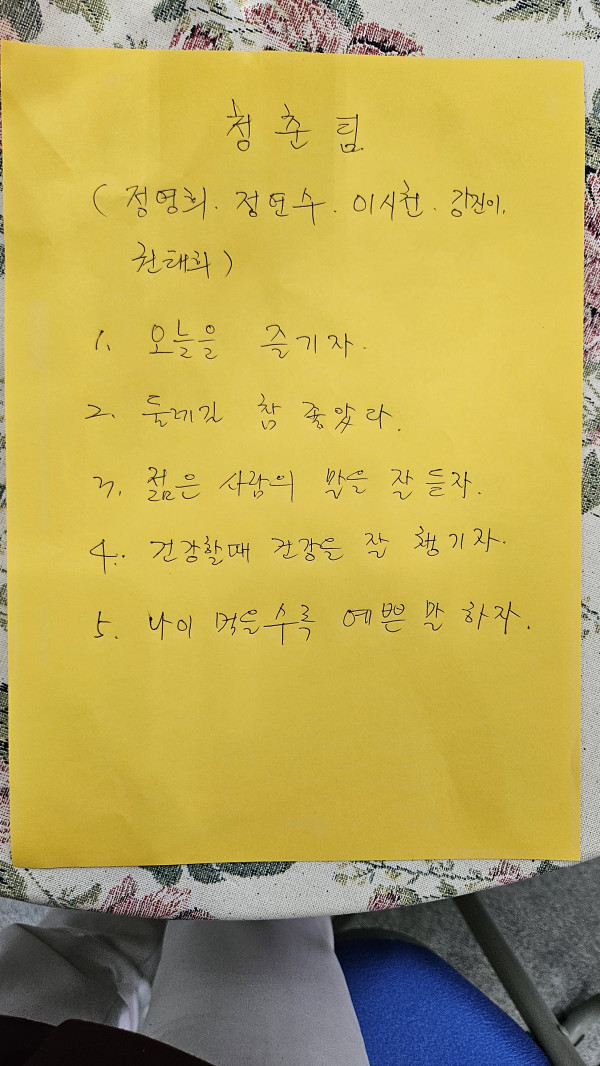 청춘팀
(정영희. 정연수. 이시천. 강진이,
권태희)
1. 오늘을 즐기자.
2. 둘레길 참 좋았다.
3. 젊은 사람의 말을 잘 듣자.
4. 건강할때 건강을 잘 챙기자.
5. 나이 먹을수록 예쁜 말 하자.